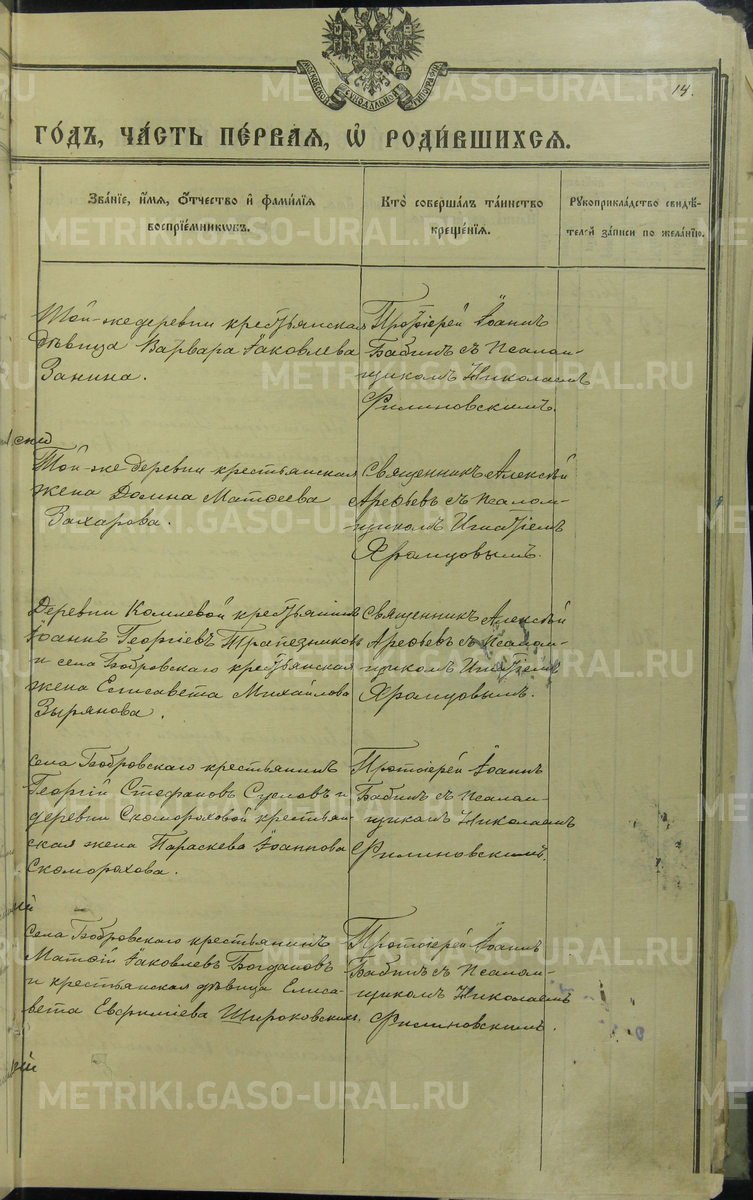 МОСКОВСКОЙ СѴНОДАЛЬНОЙ ТИПОГРАФІИ
14.
ГО́ДЪ, ЧА́СТЬ ПЕ́РВАЯ, Ѡ҆ РОДИ́ВШИХСЯ.
Зва́нїе, и҆́мя, ѻ҆́тчество и҆ фами́лїя
воспрїе́мникѡвъ.
Кто̀ соверша́лъ та́инство
креще́нїя.
Рꙋкоприкла́дство свидѣ́-
телей за́писи по жела́нїю.
Той-же деревни крестьянская
дѣвица Варвара Іаковлева
Занина.
Протоіерей Іоаннъ
Бабинъ съ псалом-
щикомъ Николаемъ
Филиновскимъ.
Той-же деревни крестьянская
жена Домна Матѳеева
Захарова.
Священникъ Алексѣй
Арефьевъ съ псалом-
щикомъ Игнатіемъ
Храмцовымъ.
Деревни Комлевой крестьянинъ
Іоаннъ Георгіевъ Трапезниковъ
и села Бобровскаго крестьянская
жена Елисавета Михайлова
Зырянова.
Священникъ Алексѣй
Арефьевъ съ псалом-
щикомъ Игнатіемъ
Храмцовымъ.
Села Бобровскаго крестьянинъ
Георгій Стефановъ Сусловъ и
деревни Скомороховой крестьян-
ская жена Параскева Іоаннова
Скоморохова.
Протоіерей Іоаннъ
Бабинъ съ псалом-
щикомъ Николаемъ
Филиновскимъ.
Села Бобровскаго крестьянинъ
Матѳій Іаковлевъ Богдановъ
и крестьянская дѣвица Елиса-
вета Евфиміева Широковскихъ.
Протоіерей Іоаннъ
Бабинъ съ псалом-
щикомъ Николаемъ
Филиновскимъ.
METRIKI.GASO-URAL.RU